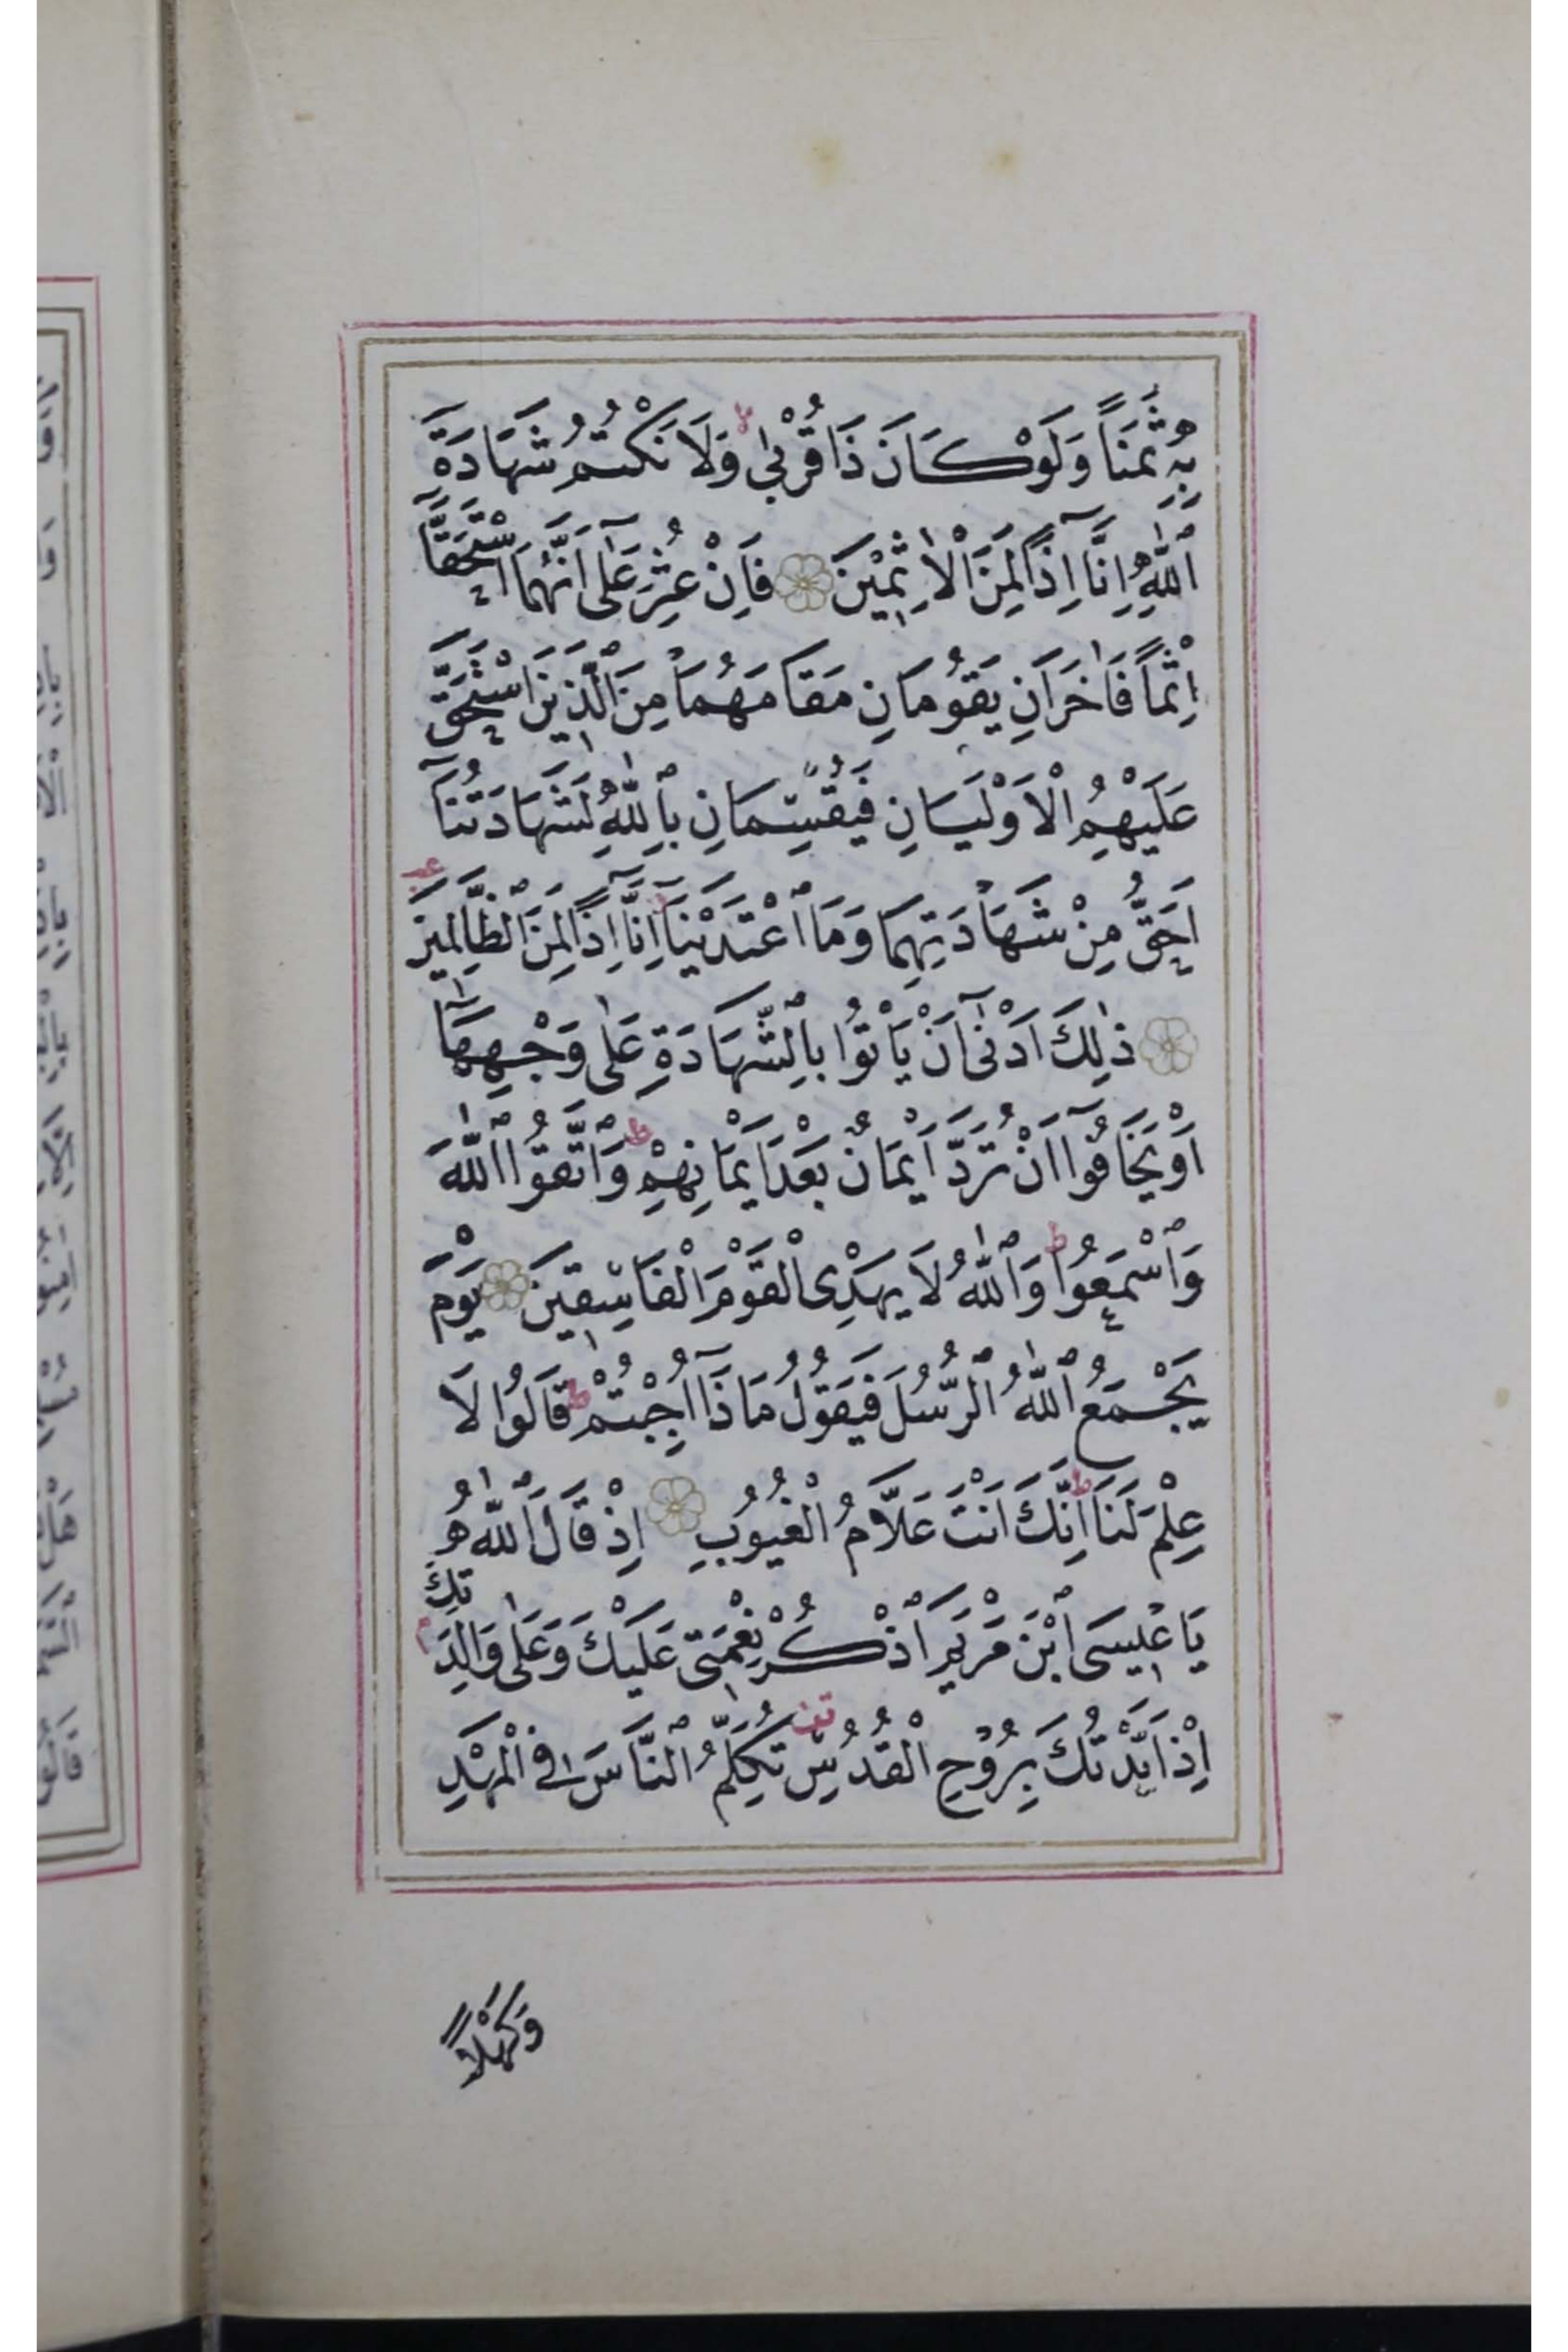 بِهِ ثَمَنًا وَلَوْ كَانَ ذَا قُرْبٰى وَلَا نَكْتُمُ شَهَادَةَ
ٱللّٰهِ اِنَّآ اِذًا لَمِنَ الْاٰثِمِيْنَ فَاِنْ عُثِرَ عَلٰٓى اَنَّهُمَا اسْتَحَقَّآ
اِثْمًا فَاٰخَرَانِ يَقُومَانِ مَقَامَهُمَا مِنَ الَّذِينَ اسْتَحَقَّ
عَلَيْهِمُ الْاَوْلَيَانِ فَيُقْسِمَانِ بِاللّٰهِ لَشَهَادَتُنَآ
اَحَقُّ مِنْ شَهَادَتِهِمَا وَمَا اعْتَدَيْنَآ اِنَّآ اِذًا لَمِنَ الظَّالِمِينَ
ذٰلِكَ اَدْنٰٓى اَنْ يَاْتُوا بِالشَّهَادَةِ عَلٰى وَجْهِهَآ
اَوْ يَخَافُوٓا اَنْ تُرَدَّ اَيْمَانٌ بَعْدَ اَيْمَانِهِمْ ط وَاتَّقُوا اللّٰهَ
وَاسْمَعُوا ط وَاللّٰهُ لَا يَهْدِى الْقَوْمَ الْفَاسِقِينَ يَوْمَ
يَجْمَعُ اللّٰهُ الرُّسُلَ فَيَقُولُ مَاذَٓا اُجِبْتُمْ ط قَالُوا لَا
عِلْمَ لَنَا ط اِنَّكَ اَنْتَ عَلَّامُ الْغُيُوبِ اِذْ قَالَ اللّٰهُ
يَا عِيسَى ابْنَ مَرْيَمَ اذْكُرْ نِعْمَتِى عَلَيْكَ وَعَلٰى وَالِدَتِكَ
اِذْ اَيَّدْتُكَ بِرُوحِ الْقُدُسِ تُكَلِّمُ النَّاسَ فِى الْمَهْدِ
وَكَهْلًا